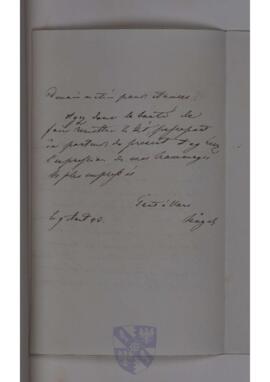 Demain matin pour
ayez donc la bonté de
faire remettre le dit passeport
au porteur du présent et agréez
l'expression de mes hommages
les plus empressés
Tout à Vous
le 9 Août